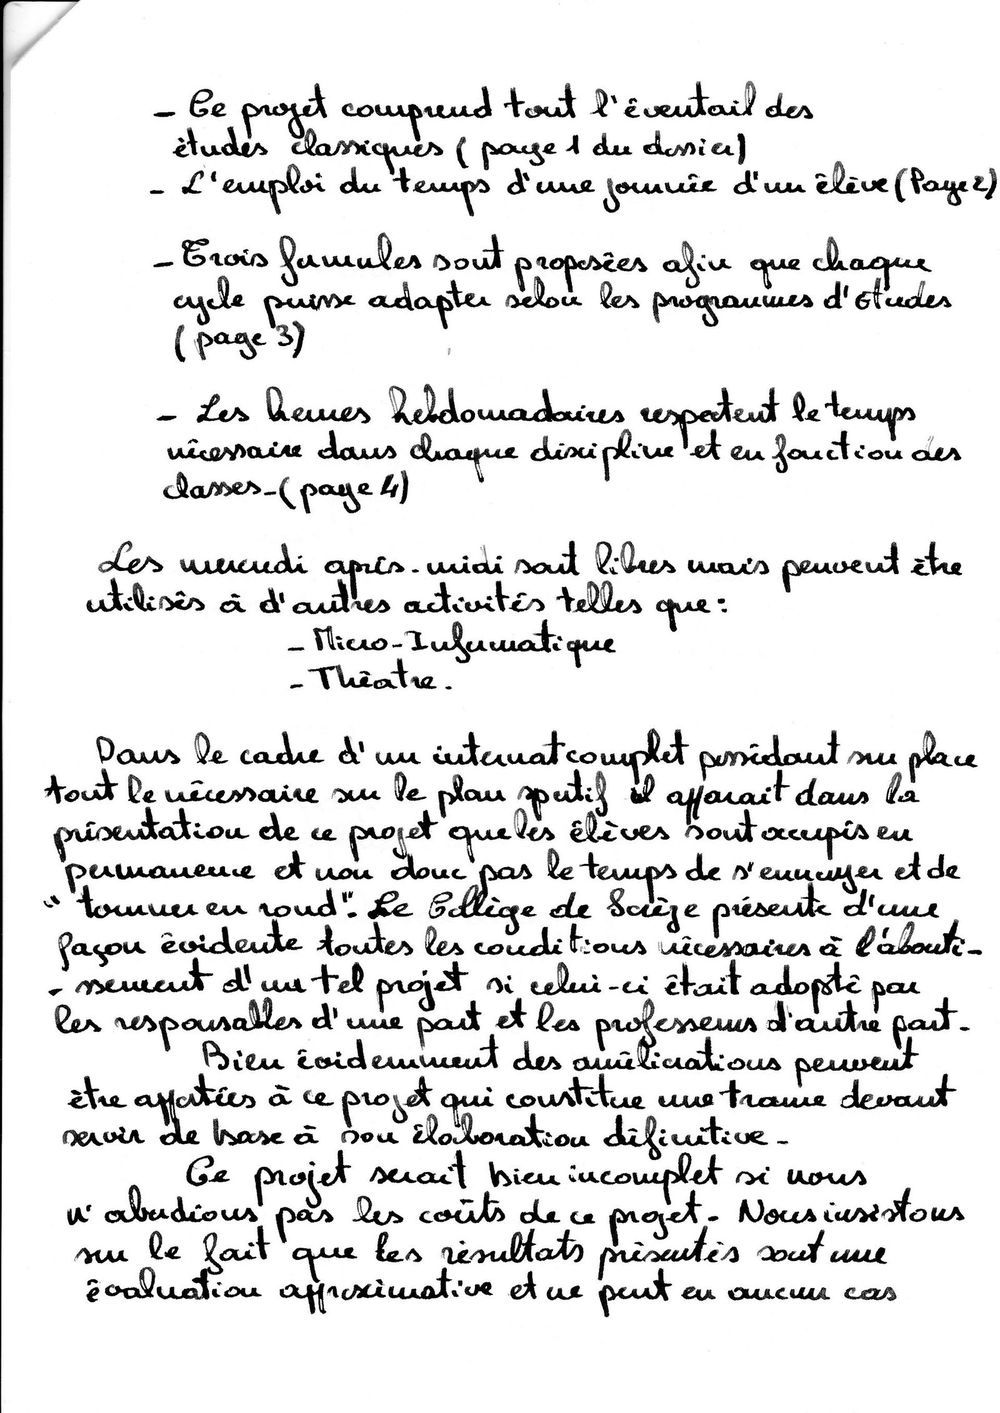 - Ce projet comprend tout l'éventail des
études classiques (page 1 du dossier)
- L'emploi du temps d'une journée d'un élève (Page 2)
- Trois formules sont proposées afin que chaque
cycle puisse adapter selon les programmes d'études
(page 3)
- Les heures hebdomadaires respectent le temps
nécessaire dans chaque discipline et en fonction des
classes - (page 4)
Les mercredi après-midi sont libres mais peuvent être
utilisés à d'autres activités telles que :
- Micro-Informatique
- Théatre.
Dans le cadre d'un internat complet possédant sur place
tout le nécessaire sur le plan sportif il apparait dans la
présentation de ce projet que les élèves sont occupés en
permanence et non donc pas le temps de s'ennuyer et de
"tourner en rond". Le Collège de Sorèze présente d'une
façon évidente toutes les conditions nécessaires à l'abouti-
- ssement d'un tel projet si celui-ci était adopté par
les responsables d'une part et les professeurs d'autre part.
Bien évidemment des améliorations peuvent
être apportées à ce projet qui constitue une trame devant
servir de base à son élaboration définitive -
Ce projet serait bien incomplet si nous
n'abordions pas les coûts de ce projet. Nous insistons
sur le fait que les résultats présentés sont une
évaluation approximative et ne peut en aucun cas